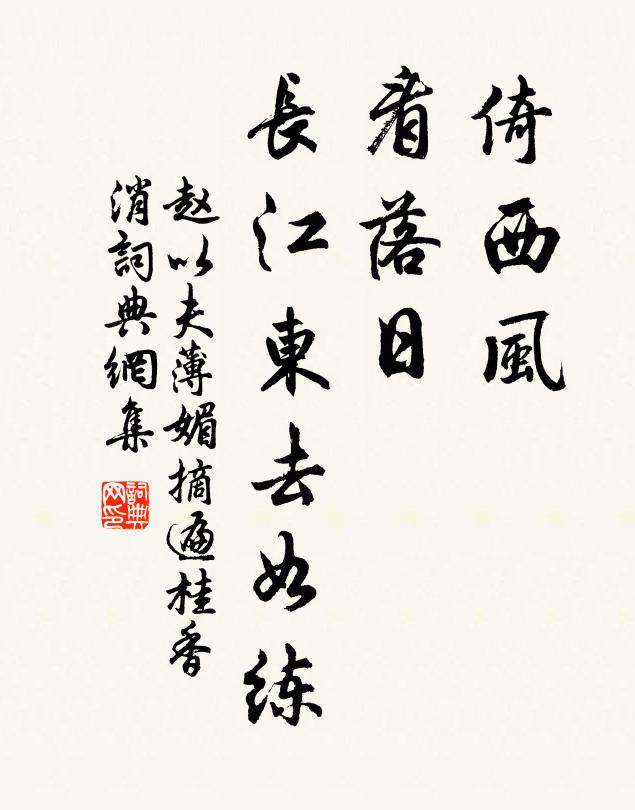 倚西風
看落日
長江東去如练
赵以夫薄媚摘遍桂香
消詞典網集
詞典
网印